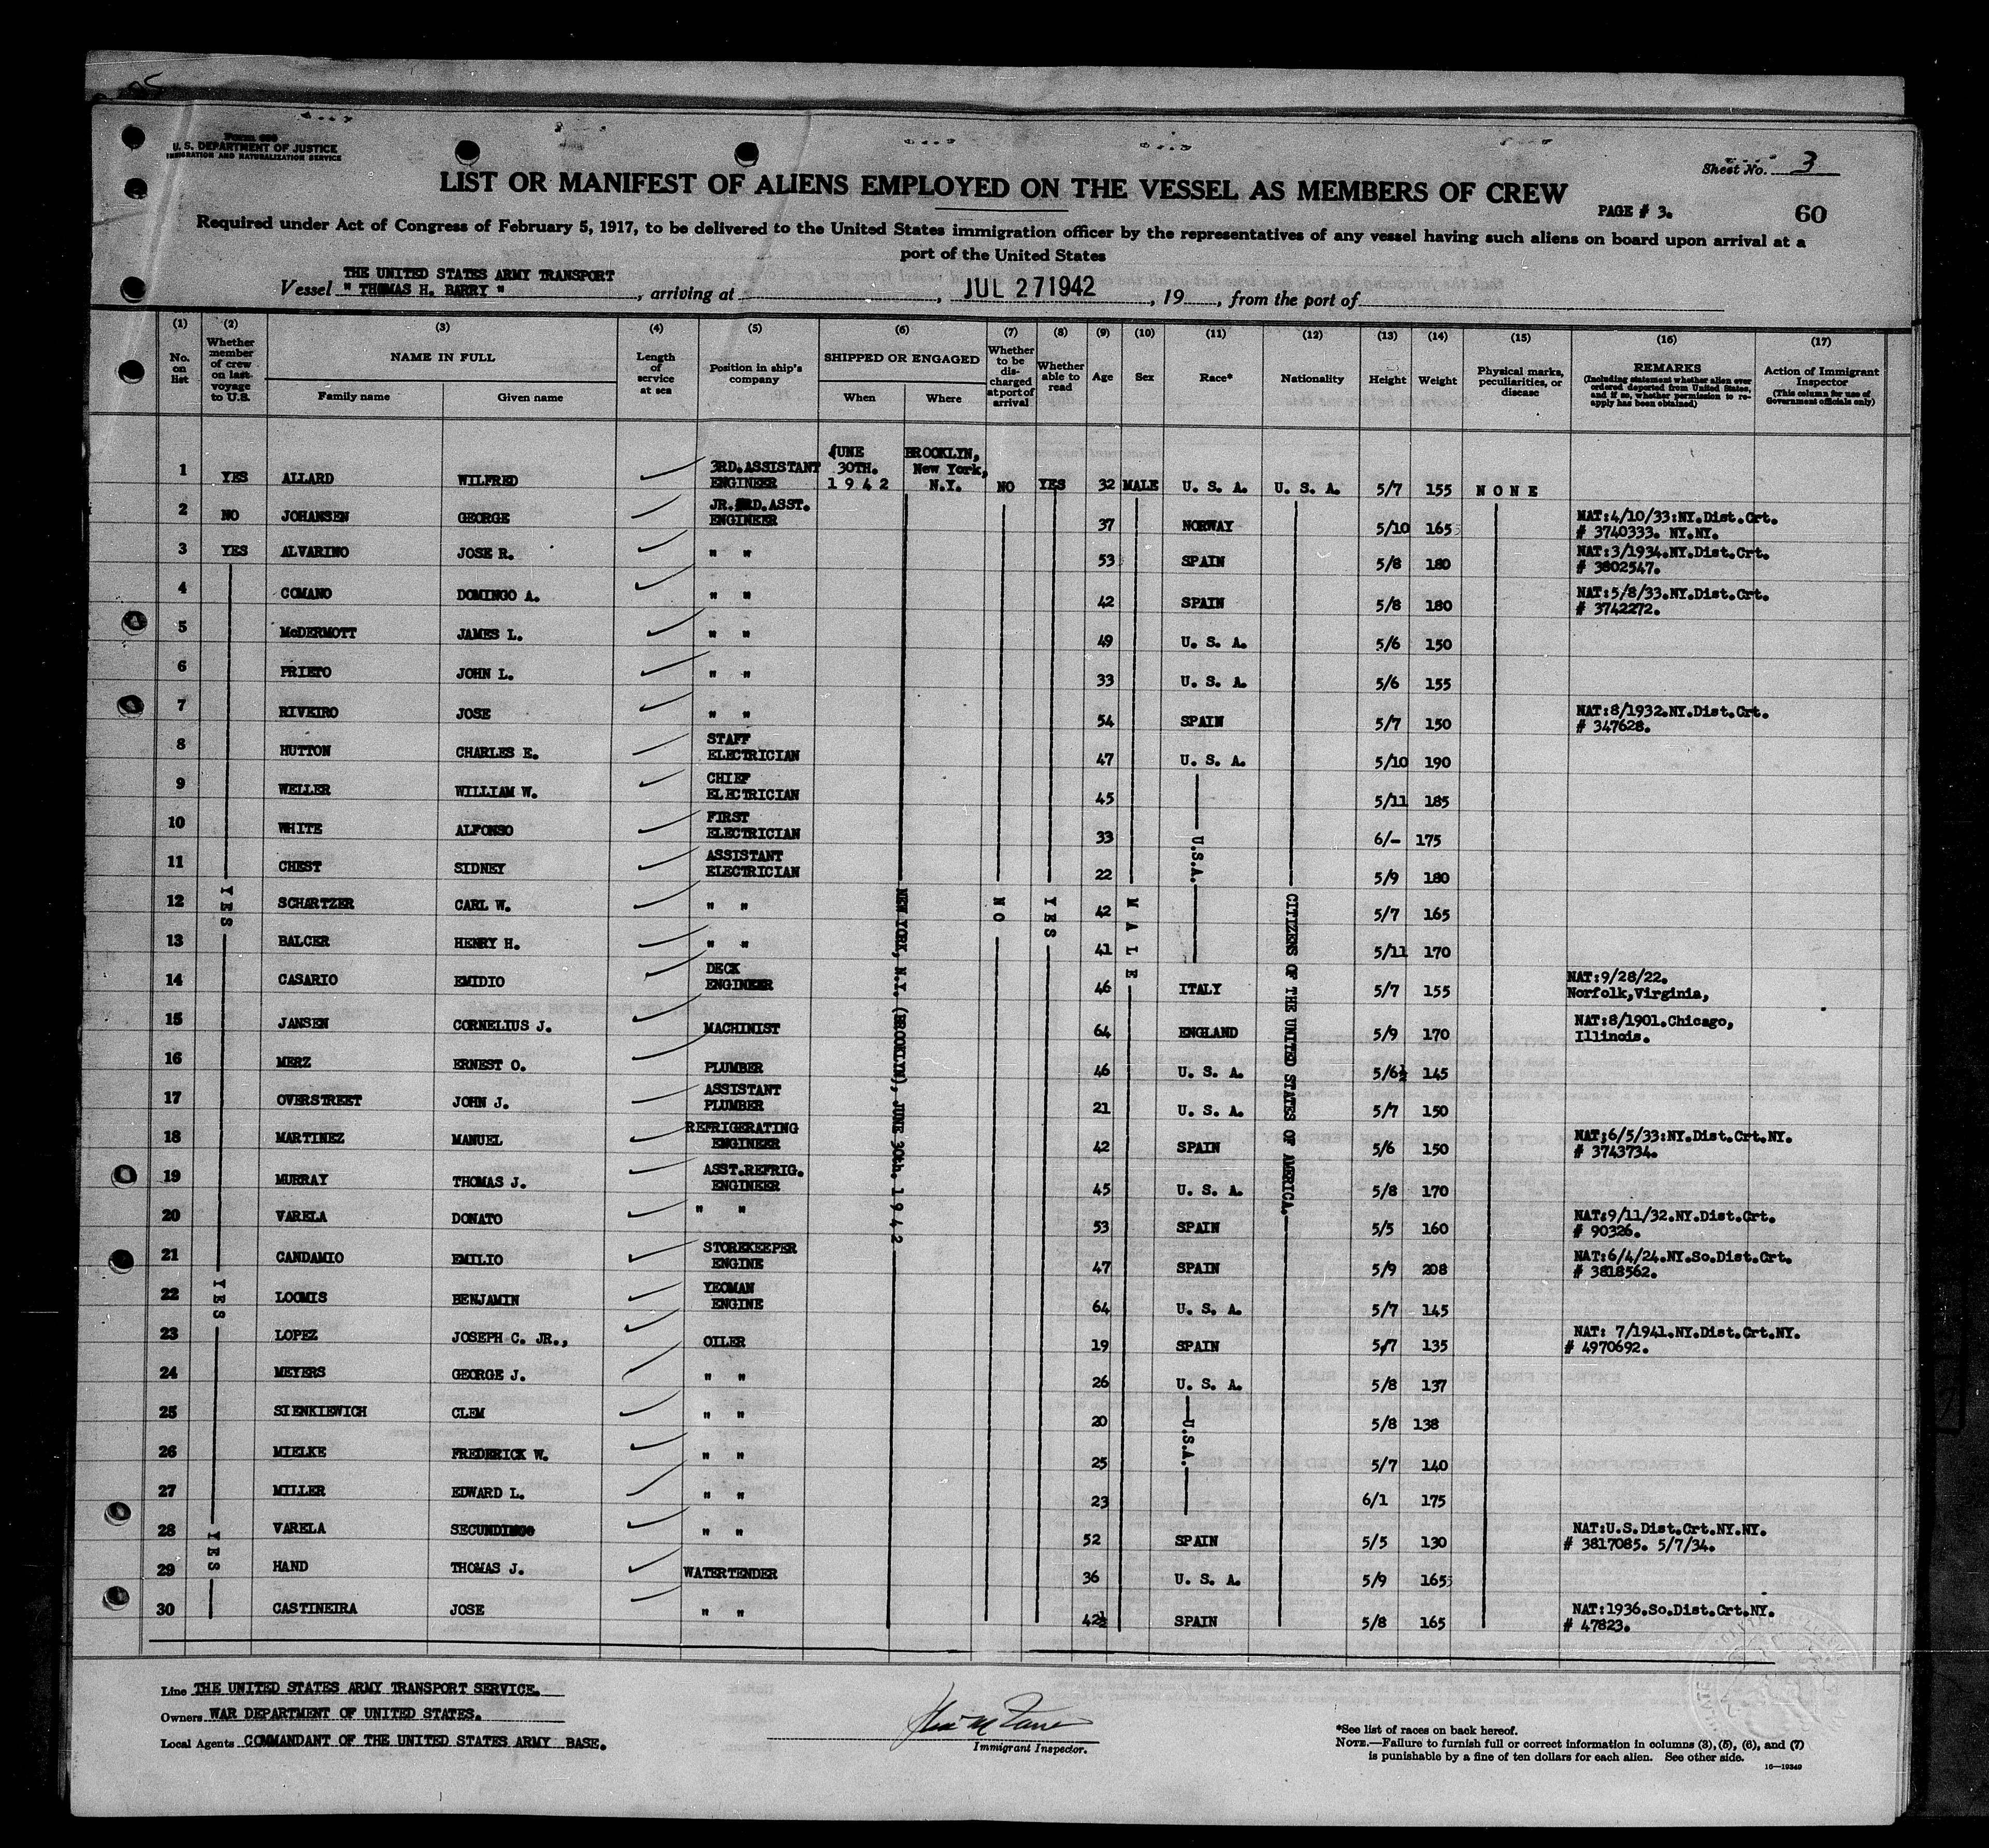 Form 689
U. S. DEPARTMENT OF JUSTICE
IMMIGRATION AND NATURALIZATION SERVICE
Sheet No. 3
LIST OR MANIFEST OF ALIENS EMPLOYED ON THE VESSEL AS MEMBERS OF CREW
PAGE # 3. 60
Required under Act of Congress of February 5, 1917, to be delivered to the United States immigration officer by the representatives of any vessel having such aliens on board upon arrival at a
port of the United States
THE UNITED STATES ARMY TRANSPORT
Vessel " THOMAS H. BARRY ", arriving at , JUL 27 1942, 19 , from the port of
(1) (2) (3) (4) (5) (6) (7) (8) (9) (10) (11) (12) (13) (14) (15) (16) (17)
No. on list Whether member of crew on last voyage to U.S. NAME IN FULL Family name Given name Length of service at sea Position in ship's company SHIPPED OR ENGAGED When Where Whether to be discharged at port of arrival Whether able to read Age Sex Race* Nationality Height Weight Physical marks, peculiarities, or disease REMARKS (Including statement whether alien ever ordered deported from United States, and if so, whether permission to re-apply has been obtained) Action of Immigrant Inspector (This column for use of Government officials only)
1 YES ALLARD WILFRED 3RD. ASSISTANT ENGINEER JUNE 30TH. 1942 BROOKLYN, New York, N.Y. NO YES 32 MALE U. S. A. U. S. A. 5/7 155 NONE
2 NO JOHANSEN GEORGE JR. 3RD. ASST. ENGINEER 37 NORWAY 5/10 165 NAT:4/10/33:NY.Dist.Crt. # 3740333. NY.NY.
3 YES ALVARINO JOSE R. " " 53 SPAIN 5/8 180 NAT:3/1934.NY.Dist.Crt. # 3802547.
4 COMANO DOMINGO A. " " 42 SPAIN 5/8 180 NAT:5/8/33.NY.Dist.Crt. # 3742272.
5 McDERMOTT JAMES L. " " 49 U. S. A. 5/6 150
6 PRIETO JOHN L. " " 33 U. S. A. 5/6 155
7 RIVEIRO JOSE " " 54 SPAIN 5/7 150 NAT:8/1932.NY.Dist.Crt. # 347628.
8 HUTTON CHARLES E. STAFF ELECTRICIAN 47 U. S. A. 5/10 190
9 WELLER WILLIAM W. CHIEF ELECTRICIAN 45 5/11 185
10 WHITE ALFONSO FIRST ELECTRICIAN 33 6/- 175
11 CHEST SIDNEY ASSISTANT ELECTRICIAN 22 U.S.A. 5/9 180
12 SCHARTZER CARL W. " " 42 5/7 165
13 BALCER HENRY H. " " 41 5/11 170
YES NEW YORK, N.Y. (BROOKLYN), JUNE 30th. 1942 NO YES MALE CITIZENS OF THE UNITED STATES OF AMERICA.
14 CASARIO EMIDIO DECK ENGINEER 46 ITALY 5/7 155 NAT:9/28/22. Norfolk,Virginia,
15 JANSEN CORNELIUS J. MACHINIST 64 ENGLAND 5/9 170 NAT:8/1901.Chicago, Illinois.
16 MERZ ERNEST O. PLUMBER 46 U. S. A. 5/6½ 145
17 OVERSTREET JOHN J. ASSISTANT PLUMBER 21 U. S. A. 5/7 150
18 MARTINEZ MANUEL REFRIGERATING ENGINEER 42 SPAIN 5/6 150 NAT;6/5/33:NY.Dist.Crt.NY. # 3743734.
19 MURRAY THOMAS J. ASST.REFRIG. ENGINEER 45 U. S. A. 5/8 170
20 VARELA DONATO " " 53 SPAIN 5/5 160 NAT:9/11/32.NY.Dist.Crt. # 90326.
21 CANDAMIO EMILIO STOREKEEPER ENGINE 47 SPAIN 5/9 208 NAT:6/4/24.NY.So.Dist.Crt. # 3818562.
22 YES LOOMIS BENJAMIN YEOMAN ENGINE 64 U. S. A. 5/7 145
23 LOPEZ JOSEPH C. JR., OILER 19 SPAIN 5/7 135 NAT: 7/1941.NY.Dist.Crt.NY. # 4970692.
24 MEYERS GEORGE J. " " 26 U. S. A. 5/8 137
25 SIENKIEWICH CLEM " " 20 5/8 138
26 MIELKE FREDERICK W. " " 25 U.S.A. 5/7 140
27 MILLER EDWARD L. " " 23 6/1 175
28 YES VARELA SECUNDINGO " " 52 SPAIN 5/5 130 NAT:U.S.Dist.Crt.NY.NY. # 3817085. 5/7/34.
29 HAND THOMAS J. WATERTENDER 36 U. S. A. 5/9 165
30 CASTINEIRA JOSE " " 42½ SPAIN 5/8 165 NAT:1936.So.Dist.Crt.NY. # 47823.
Line THE UNITED STATES ARMY TRANSPORT SERVICE.
Owners WAR DEPARTMENT OF UNITED STATES.
Local Agents COMMANDANT OF THE UNITED STATES ARMY BASE.
Immigrant Inspector.
*See list of races on back hereof.
NOTE.—Failure to furnish full or correct information in columns (3), (5), (6), and (7)
is punishable by a fine of ten dollars for each alien. See other side.
16—19349